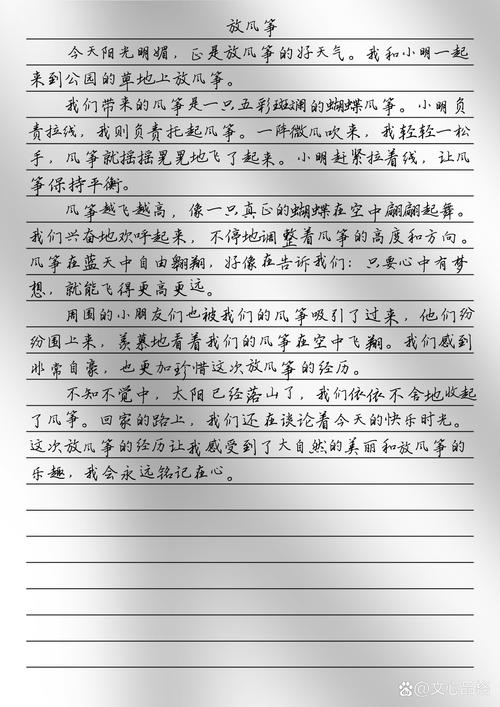 放风筝
今天阳光明媚，正是放风筝的好天气。我和小明一起
来到公园的草地上放风筝。
我们带来的风筝是一只五彩斑斓的蝴蝶风筝。小明负
责拉线，我则负责托起风筝。一阵微风吹来，我轻轻一松
手，风筝就摇摇晃晃地飞了起来。小明赶紧拉着线，让风
筝保持平衡。
风筝越飞越高，像一只真正的蝴蝶在空中翩翩起舞。
我们兴奋地欢呼起来，不停地调整着风筝的高度和方向。
风筝在蓝天中自由翱翔，好像在告诉我们：只要心中有梦
想，就能飞得更高更远。
周围的小朋友们也被我们的风筝吸引了过来，他们纷
纷围上来，羡慕地看着我们的风筝在空中飞翔。我们感到
非常自豪，也更加珍惜这次放风筝的经历。
不知不觉中，太阳已经落山了，我们依依不舍地收起
了风筝。回家的路上，我们还在谈论着今天的快乐时光。
这次放风筝的经历让我感受到了大自然的美丽和放风筝的
乐趣，我会永远铭记在心。
@文心品格